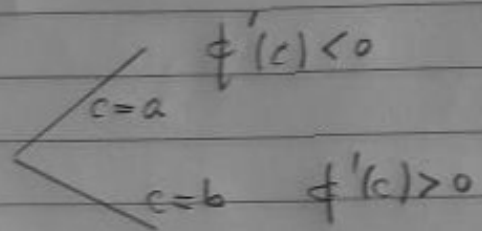 c=a f'(c)<0
c=b f'(c)>0